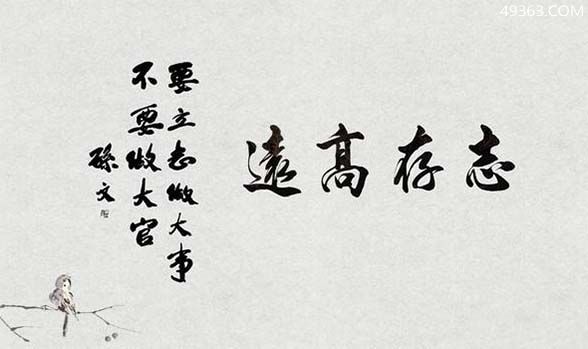 志存高遠
要立志做大事
不要做大官
孫文
49363.COM